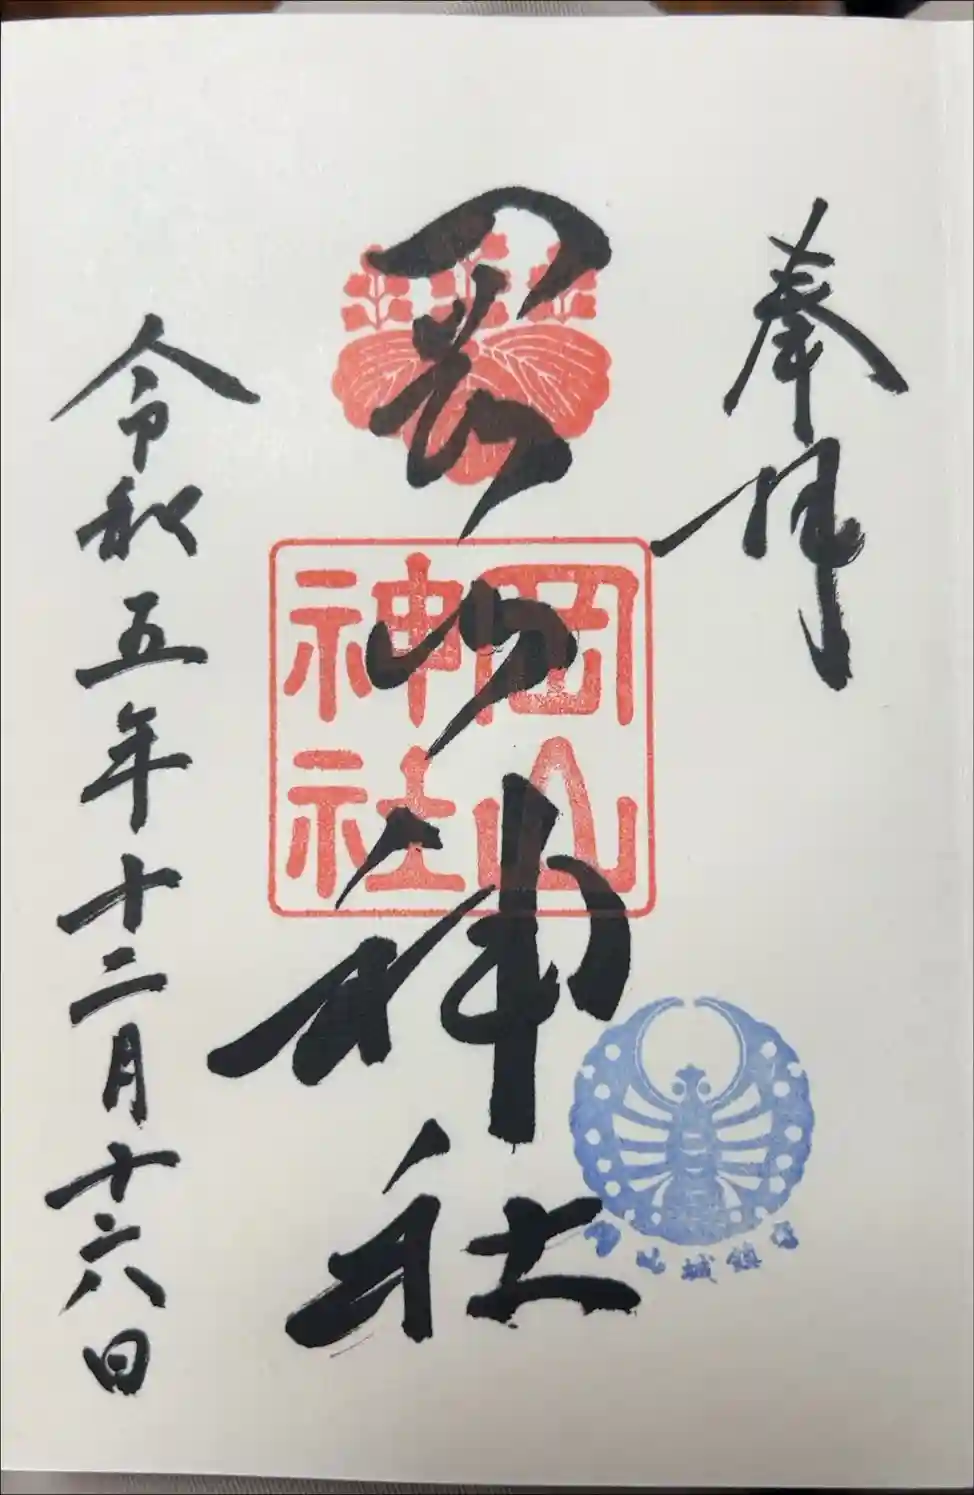 奉拝
岡山神社
岡山
神社
岡山城鎮守
令和五年十二月十六日